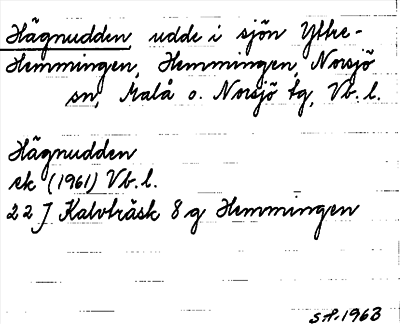 Hägnudden, udde i sjön Yttre-
Hemmingen, Hemmingen, Norsjö
sn, Malå o. Norsjö tg, Vb. l.
Hägnudden
ek (1961) Vb. l.
22 J Kalvträsk 8 g Hemmingen
SA. 1963